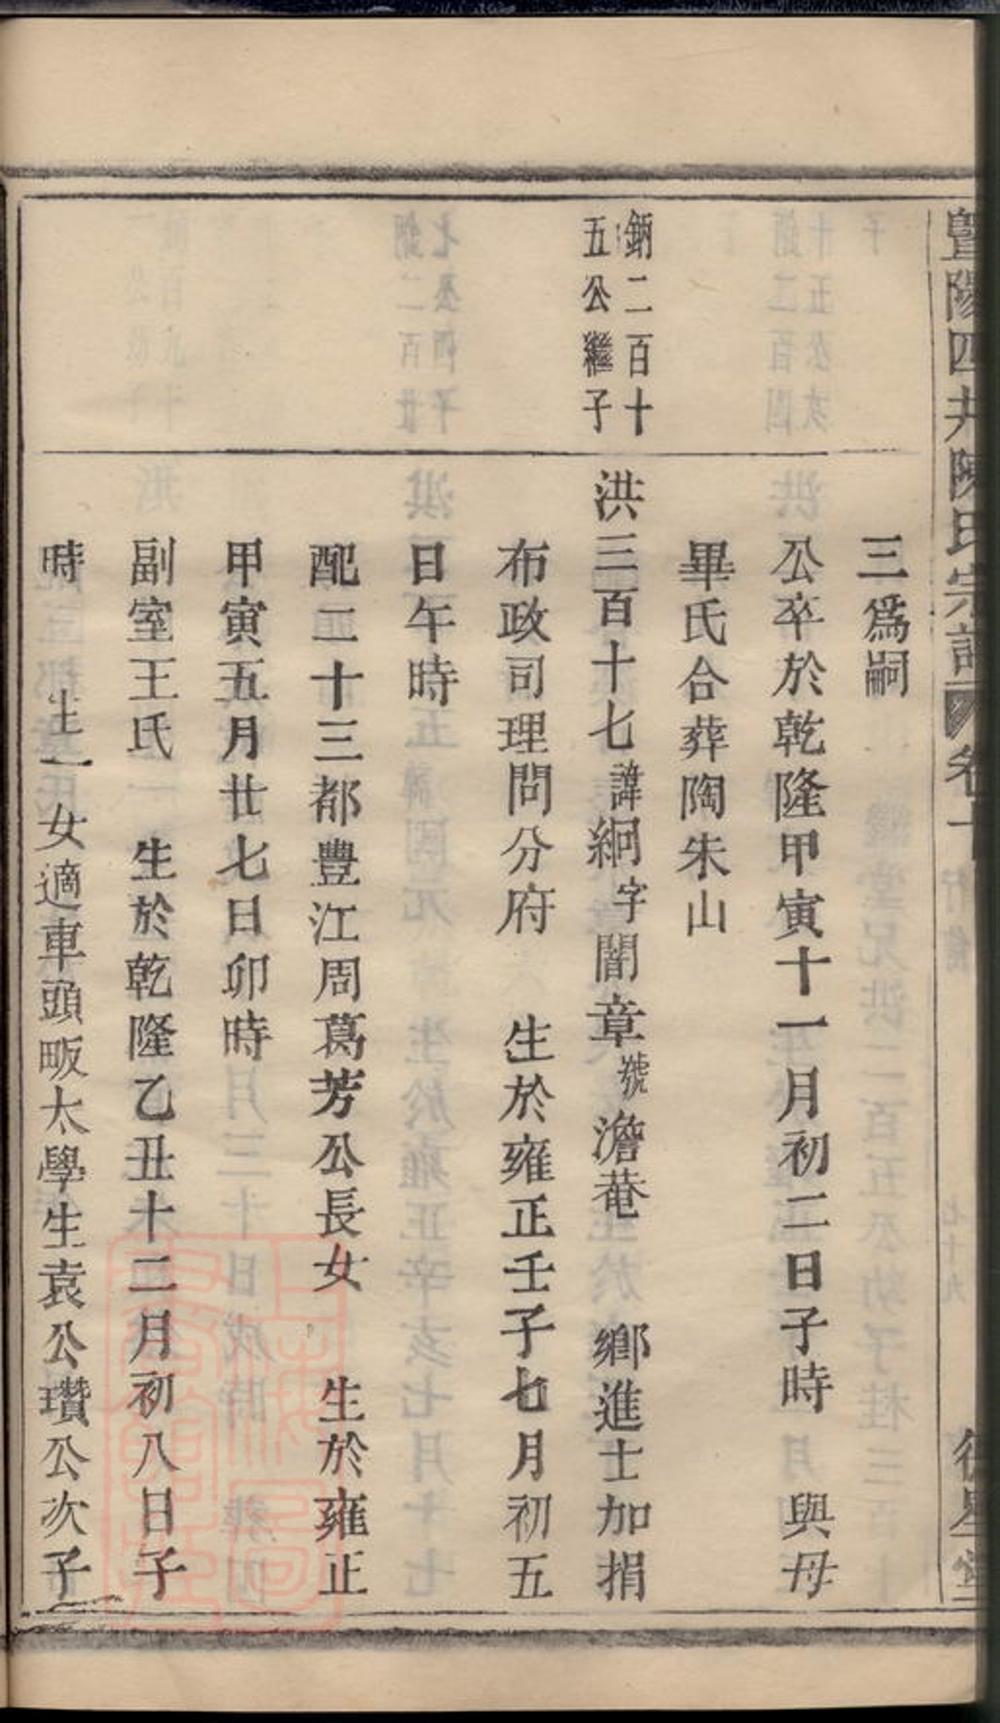 暨陽四井陳氏宗譜 卷十
三爲嗣
公卒於乾隆甲寅十一月初二日子時 與母
畢氏合葬陶朱山
鈵二百十
五公繼子
洪三百十七諱絅字闇章號澹菴 鄉進士加捐
布政司理問分府 生於雍正壬子七月初五
日午時
配二十三都豊江周葛芳公長女 生於雍正
甲寅五月廿七日卯時
副室王氏 生於乾隆乙丑十二月初八日子
時 生一女適車頭畈太學生袁公瓚公次子